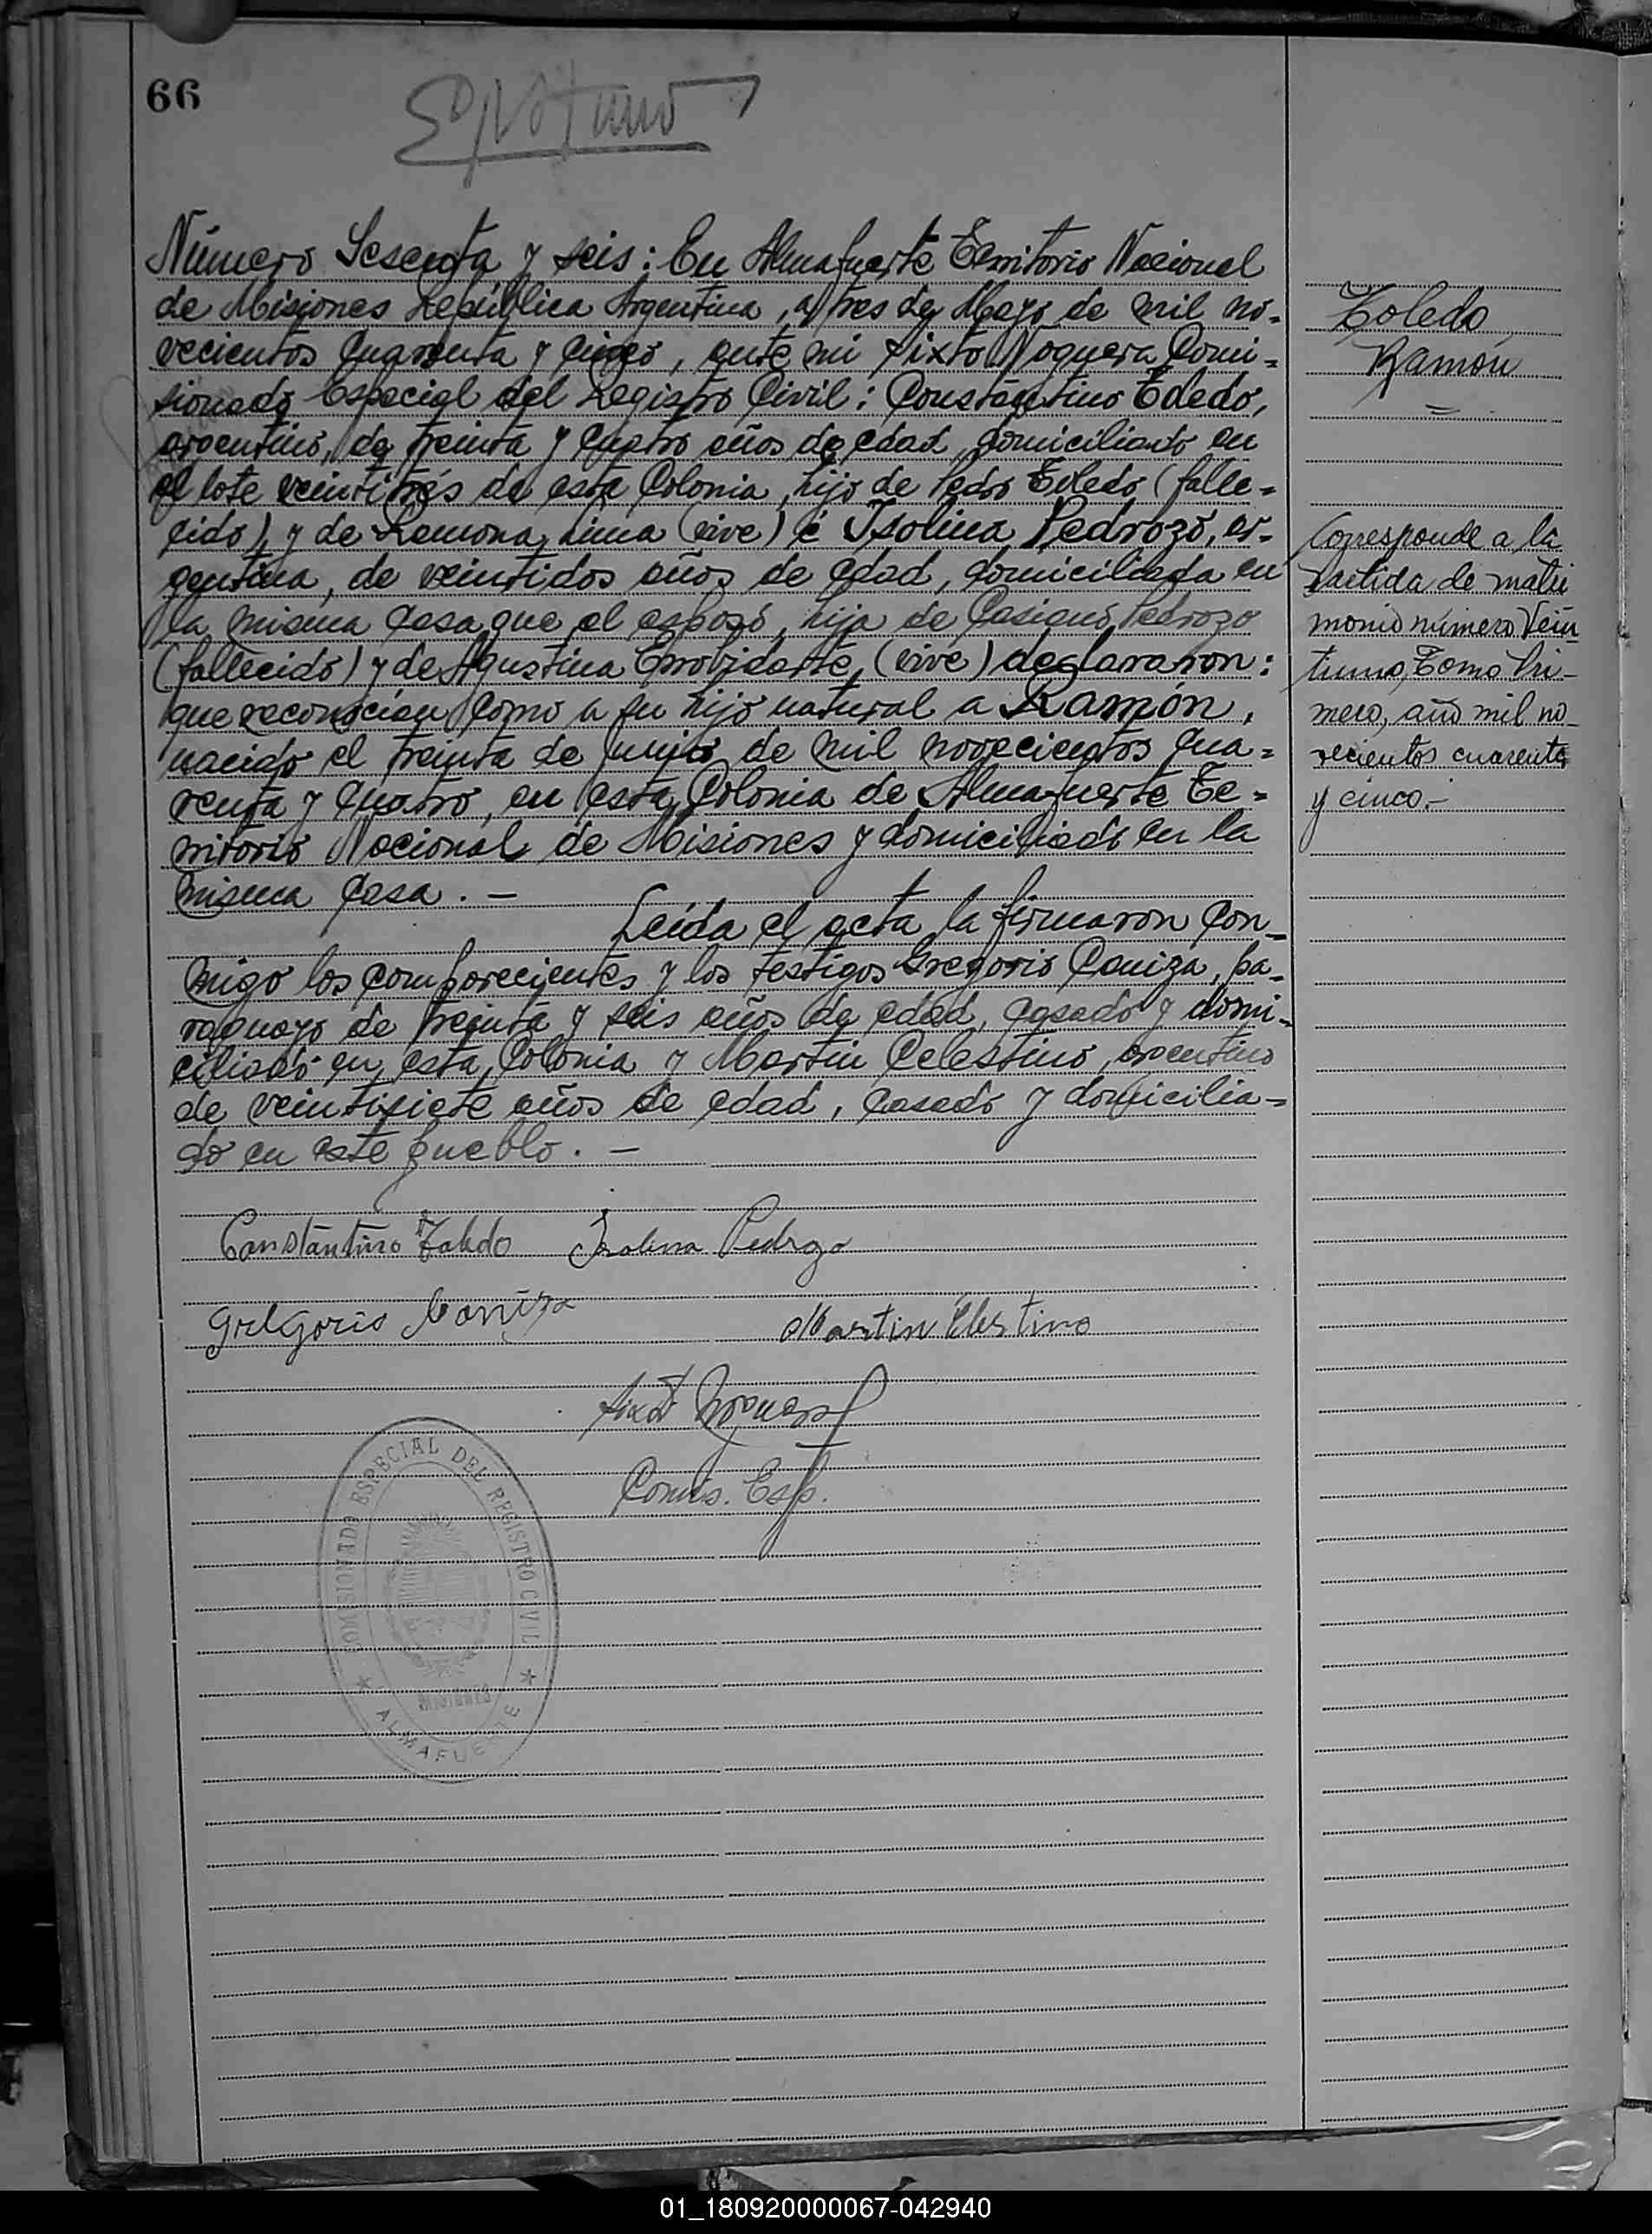 66
Número Sesenta y seis: En Almafuerte Territorio Nacional
de Misiones República Argentina, a tres de Mayo de mil no-
vecientos cuarenta y cinco, ante mi Sixto Noguera Comi-
sionado Especial del Registro Civil: Constantino Toledo,
argentino, de treinta y cuatro años de edad, domiciliado en
el lote veintitrés de esta Colonia, hijo de Pedro Toledo (falle-
cido) y de Ramona Lima (vive) é Isolina Pedrozo, ar-
gentina, de veintidos años de edad, domiciliada en
la misma casa que el esposo, hija de Casiano Pedrozo
(fallecido) y de Agustina (vive) declararon:
que reconocían como a su hijo natural a Ramón,
nacido el treinta de Junio de mil novecientos cua-
renta y cuatro, en esta Colonia de Almafuerte Te-
rritorio Nacional de Misiones y domiciliado en la
misma casa. —
Leída el acta la firmaron con-
migo los comparecientes y los testigos Gregorio Caniza, pa-
raguayo de treinta y seis años de edad, casado y domi-
ciliado en esta Colonia y Martín Celestino, argentino
de veintisiete años de edad, casado y domicilia-
do en este pueblo. —
Constantino Toledo Isolina Pedrozo
Gregorio Caniza Martin Celestino
Sixto Noguera
Comis. Esp.
COMISIONADO ESPECIAL DEL REGISTRO CIVIL
MISIONES
* ALMAFUERTE *
Toledo,
Ramón
=
Corresponde a la
partida de matri
monio número Vein
tiuno, Tomo Pri-
mero, año mil no-
vecientos cuarenta
y cinco.-
01_180920000067-042940